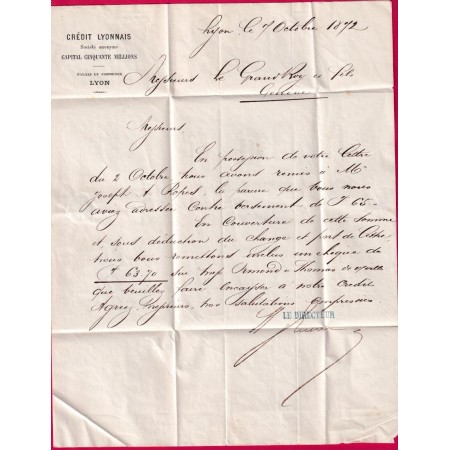 CRÉDIT LYONNAIS
Société anonyme
CAPITAL CINQUANTE MILLIONS
PALAIS DU COMMERCE
LYON
Lyon le 7 Octobre 1872
Messieurs Le GrandRoy et fils
Genève
Messieurs
En possession de votre Lettre
du 2 Octobre, nous avons remis à Mr
Joseph A. la que vous nous
avez adressée contre versement de F 65 -
En Couverture de cette somme
et, sous déduction du change et port de lettre
nous vous remettons inclus un chèque de
F 63.70 sur Mrs Ormond & Thomas de
que veuillez faire encaisser à notre Crédit
Agréez Messieurs, nos salutations empressées
LE DIRECTEUR